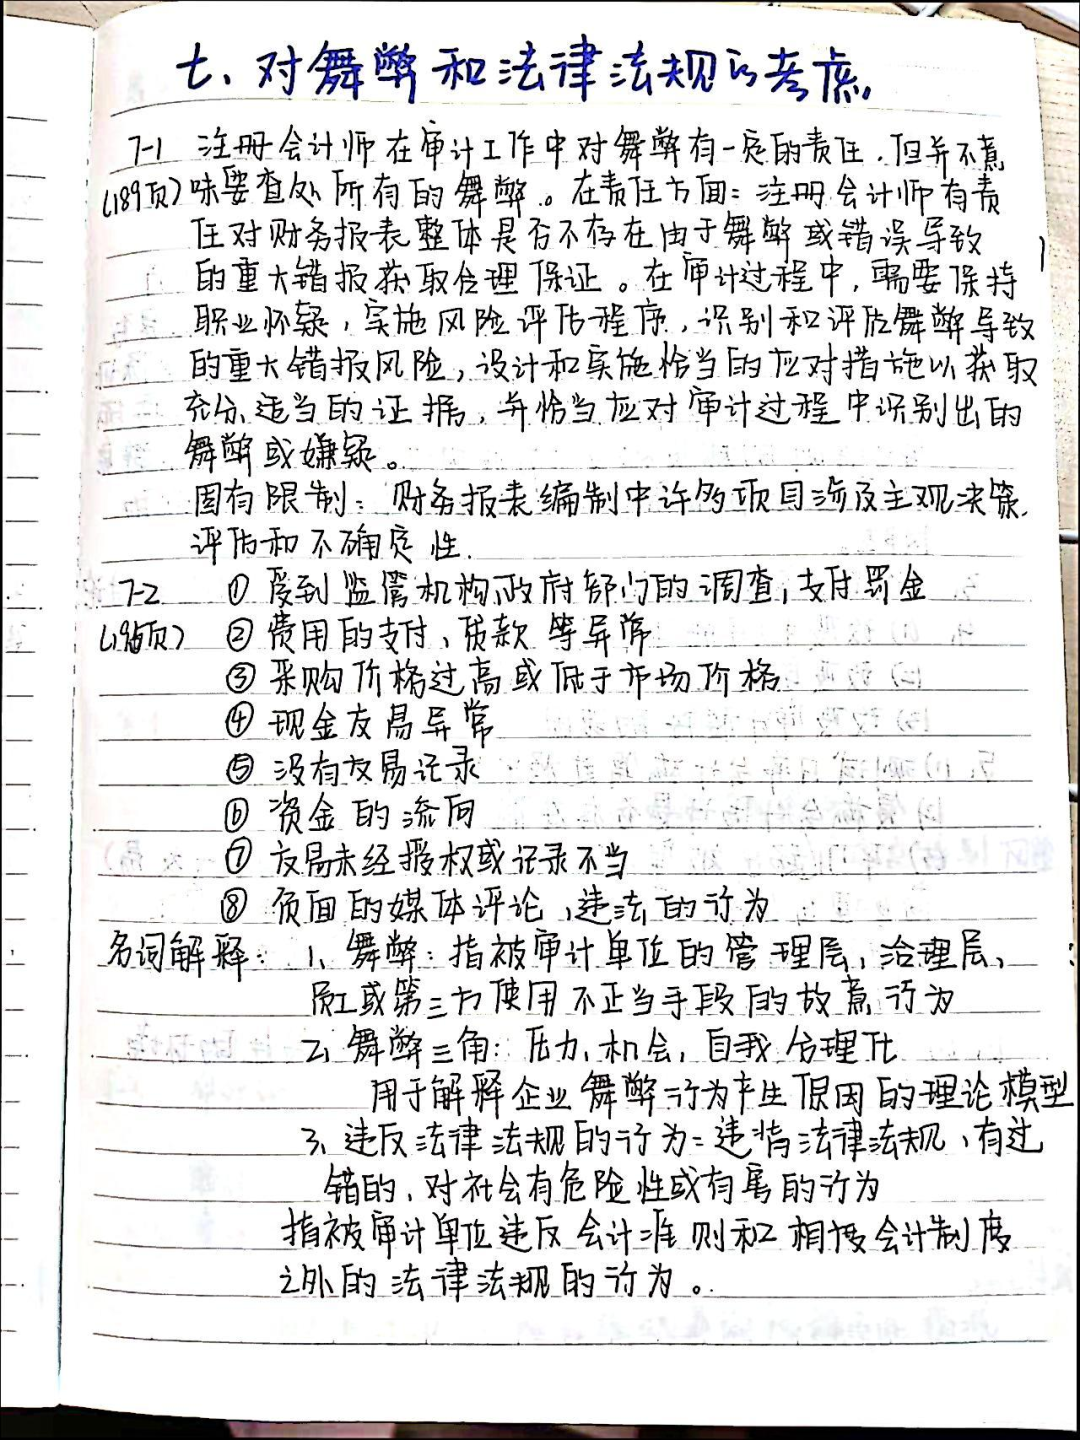 七、对舞弊和法律法规的考虑
7-1 注册会计师在审计工作中对舞弊有一定的责任,但并不意
(189页)味要查处所有的舞弊。在责任方面:注册会计师有责
任对财务报表整体是否不存在由于舞弊或错误导致
的重大错报获取合理保证。在审计过程中,需要保持
职业怀疑,实施风险评估程序,识别和评估舞弊导致
的重大错报风险,设计和实施恰当的应对措施以获取
充分、适当的证据,并恰当应对审计过程中识别出的
舞弊或嫌疑。
固有限制:财务报表编制中许多项目涉及主观决策、
评估和不确定性.
7-2 ① 受到监管机构、政府部门的调查,支付罚金
(196页) ② 费用的支付、贷款等异常
③ 采购价格过高或低于市场价格
④ 现金交易异常
⑤ 没有交易记录
⑥ 资金的流向
⑦ 交易未经授权或记录不当
⑧ 负面的媒体评论、违法的行为
名词解释: 1、舞弊:指被审计单位的管理层、治理层、
员工或第三方使用不正当手段的故意行为
2、舞弊三角:压力、机会、自我合理化
用于解释企业舞弊行为产生原因的理论模型
3、违反法律法规的行为:违背法律法规、有过
错的、对社会有危险性或有害的行为
指被审计单位违反会计准则和相关会计制度
之外的法律法规的行为。